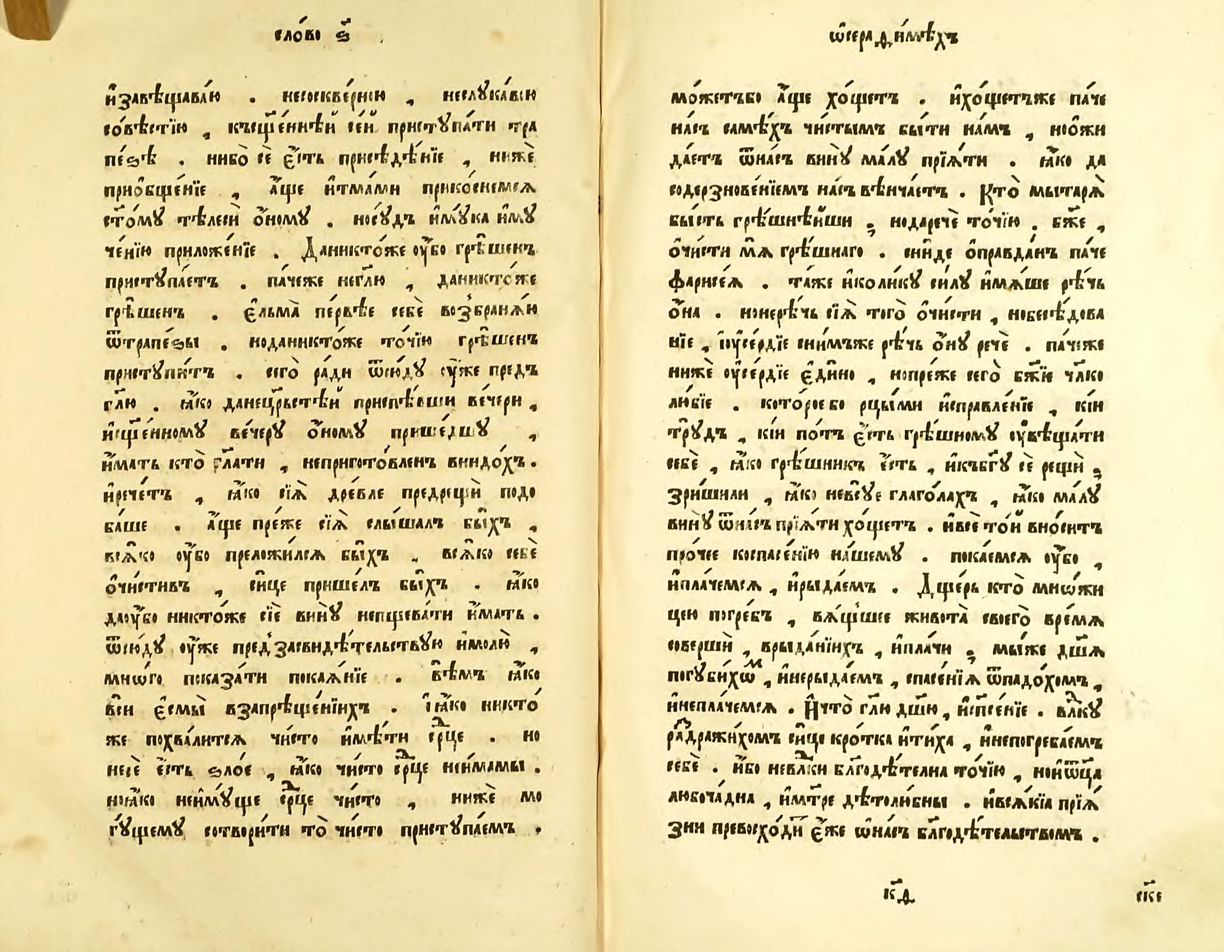 сло́во ѕ҃
и҆завѣщава́ю . несоскве́рнїю , неслꙋка́вїю
со́вѣстїю , къщ҃е́ннѣй се́й пристꙋпа́ти тра
пе́ѕѣ . нибо̀ сѐ є҆́сть присѣдѣ́нїе , нижѐ
прио҆бще́нїе , а҆́ще и҆тма́ми прикосне́мсѧ
ст҃о́мꙋ тѣлесѝ о҆́номꙋ . носꙋ́дъ и҆мꙋ́ка и҆мꙋ
че́нїю приложе́нїе . Даникто́же оу҆̀бо грѣ́шенъ
пристꙋпа́етъ . па́чеже негл҃ю , даникто́же
грѣ́шенъ . є҆льма̀ пе́рвѣе себѐ возбранѧ́ю
ѿтрапе́ѕы . ноданикто́же то́чїю грѣ́шенъ
пристꙋпи́тъ . сего̀ ра́ди ѿсю́дꙋ оу҆́же предъ
гл҃ю . ꙗ҆́ко данецр҃ьстѣ́й приспѣ́вши ве́чери ,
и҆сщ҃е́нномꙋ ве́черꙋ о҆́номꙋ прише́дшꙋ ,
и҆́мать кто̀ гл҃ати , неприготовле́нъ внидо́хъ .
и҆рече́тъ , ꙗ҆́ко сїѧ̀ дре́вле предрещѝ подо
ба́ше . а҆́ще пре́же сїѧ̀ слы́шалъ бы́хъ ,
всѧ́ко оу҆́бо преложи́лсѧ бы́хъ , всѧ́ко себѐ
о҆чи́стивъ , си́це прише́лъ бы́хъ . ꙗ҆́ко
даоу҆́бо никто́же сїѐ винꙋ̀ непщева́ти и҆́мать .
ѿсю́дꙋ оу҆́же предзасвидѣ́тельствꙋю и҆молю̀ ,
мно́го показа́ти покаѧ́нїе . вѣ́мъ ꙗ҆́ко
всѝ є҆смы̀ взапреще́нїихъ . и҆ꙗ҆́ко никто́
же похва́литсѧ чи́сто и҆мѣ́ти ср҃це . но
несѐ є҆́сть ѕло́е , ꙗ҆́ко чи́сто ср҃це неи҆́мамы .
ноꙗ҆́ко неи҆мꙋ́ще ср҃це чи́сто , нижѐ мо
гꙋ́щемꙋ сотвори́ти то̀ чи́сто пристꙋпа́емъ .
ѡ҆серафи́мѣхъ
мо́жетъбо а҆́ще хо́щетъ . и҆хо́щетъже па́че
на́съ самѣ́хъ чи́стымъ бы́ти на́мъ , но́ѡжи
да́етъ ѿна́съ винꙋ̀ ма́лꙋ прїѧ́ти . ꙗ҆́ко да
содерзнове́нїемъ на́съ вѣнча́етъ . Кто̀ мытарѧ̀
бы́сть грѣ́шнѣйши ; нода́рече то́чїю . бж҃е ,
о҆чи́сти мѧ̀ грѣ́шнаго . сни́де о҆правда́нъ па́че
фарисе́ѧ . та́же и҆коли́кꙋ си́лꙋ и҆мѧ́ше рѣ́чь
о҆́на . нонерѣ́чь сїѧ̀ того̀ о҆чи́сти , нобесѣ́дова
нїе , и҆оу҆се́рдїе сни́мъже рѣ́чь о҆́нꙋ речѐ . па́чеже
нижѐ оу҆се́рдїе є҆ди́но , нопре́же сего̀ бж҃їе чл҃ко
лю́бїе . кото́роебо рцы́ми и҆справле́нїе , кі́и
трꙋ́дъ , кі́и по́тъ є҆́сть грѣ́шномꙋ оу҆вѣща́ти
себѐ , ꙗ҆́ко грѣ́шникъ є҆́сть , и҆къбг҃ꙋ сѐ рещѝ ;
зри́шили , ꙗ҆́ко невсꙋ́е глаго́лахъ , ꙗ҆́ко ма́лꙋ
винꙋ̀ ѿна́съ прїѧ́ти хо́щетъ . и҆всѐ то́й вно́ситъ
про́чее коспасе́нїю на́шемꙋ . пока́емсѧ оу҆́бо ,
и҆пла́чемсѧ , и҆рыда́емъ . Дще́рь кто̀ мно́жи
цею погре́бъ , вѧ́щшее живота̀ своего̀ вре́мѧ
сове́ршѝ , врыда́нїихъ , и҆пла́чи ; мы́же дш҃ꙋ
погꙋби́хѡмъ , и҆нерыда́емъ , спасе́нїѧ ѿпадо́хомъ ,
и҆непла́чемсѧ . И҆что̀ гл҃ю дш҃ю , и҆сп҃се́нїе . влⷣкꙋ
раздражи́хомъ си́це кро́тка и҆ти́ха , и҆непогреба́емъ
себѐ . и҆́бо невлⷣки бл҃годѣ́телна то́чїю , нои҆ѻ҆ц҃а̀
любоча́дна , и҆мт҃ре дѣтолю́бны . и҆всѧ́кїѧ прїѧ́
зни превосхо́дѝ є҆́же ѡ҆на́съ бл҃годѣ́тельствомъ .
к҃д
є҆́же